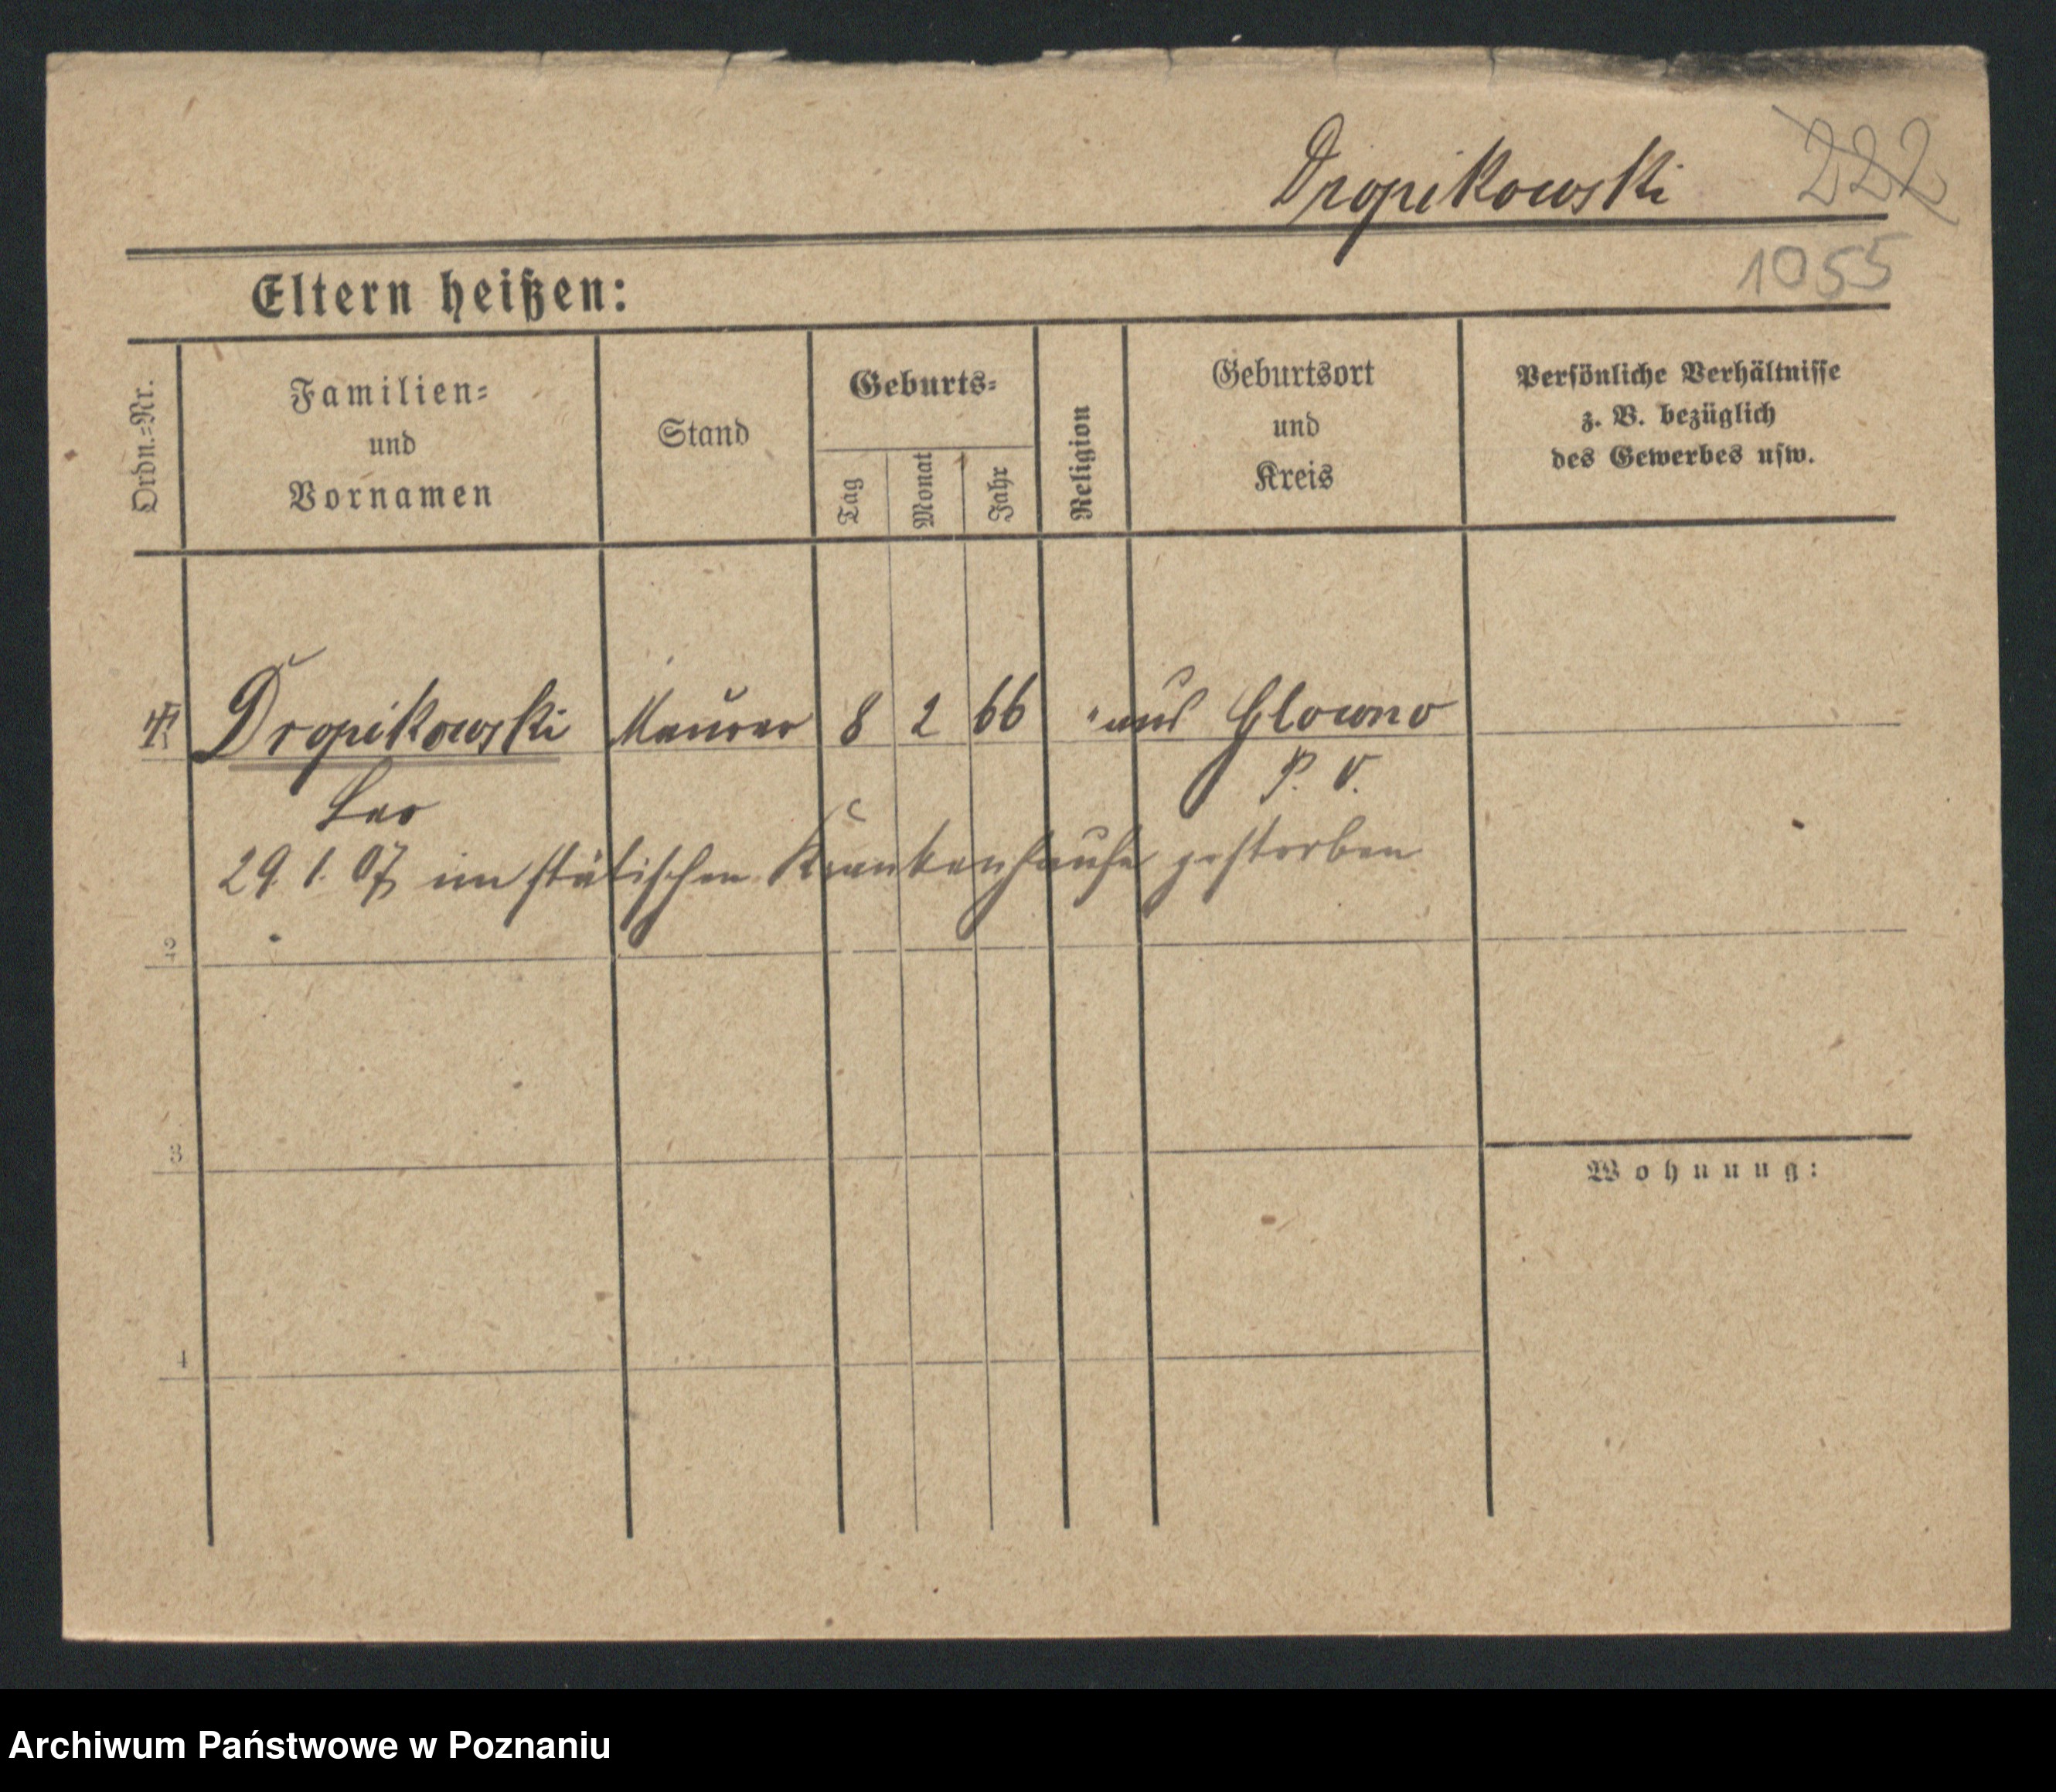 Dropikowski 222
1055
Eltern heißen:
Ordn.-Nr.
Familien-
und
Vornamen
Stand
Geburts-
Tag
Monat
Jahr
Religion
Geburtsort
und
Kreis
Persönliche Verhältnisse
z. B. bezüglich
des Gewerbes usw.
Dropikowski Maurer 8 2 66 aus Glowno
Leo P. O.
29. 1. 07 im städtischen Krankenhause gestorben
2
3
Wohnung:
4
Archiwum Państwowe w Poznaniu